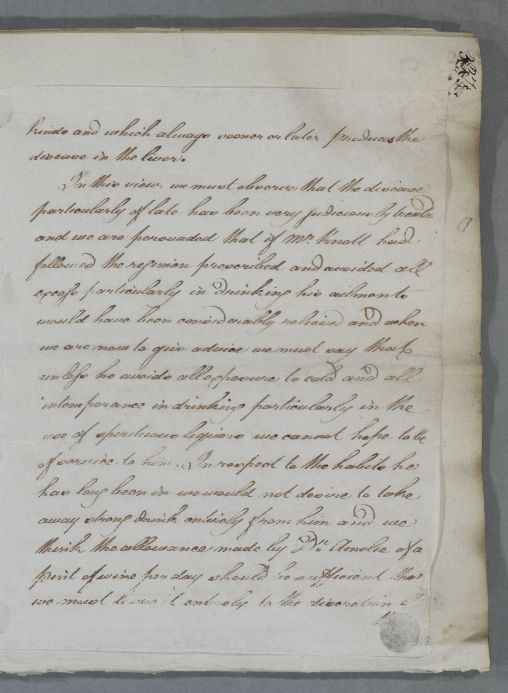 kinds and which always sooner or later produces the
disease in the liver.
In this view we must observe that the disease
particularly of late has been very judiciously treated
and we are persuaded that if Mr. Knott had
followed the regimen prescribed and avoided all
excess particularly in drinking his ailments
would have been considerably relieved and when
we are now to give advice we must say that
unless he avoids all exposure to cold and all
intemperance in drinking particularly in the
use of spirituous liquors we cannot hope to be
of service to him. In respect to the habits he
has long been in we would not desire to take
away strong drink entirely from him and we
think the allowance made by Dr. Ainslie of a
pint of wine per day should be sufficient tho'
we must leave it entirely to the discretion